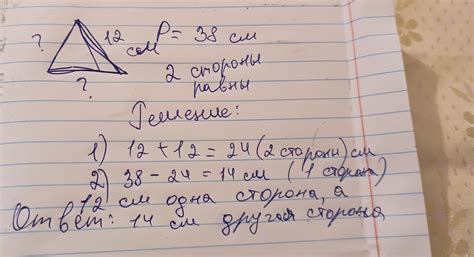 ? 12 см P = 38 см
?
2 стороны
равны
Решение:
1) 12 + 12 = 24 (2 стороны) см
2) 38 - 24 = 14 см (1 сторона)
12 см одна сторона, а
Ответ: 14 см другая сторона